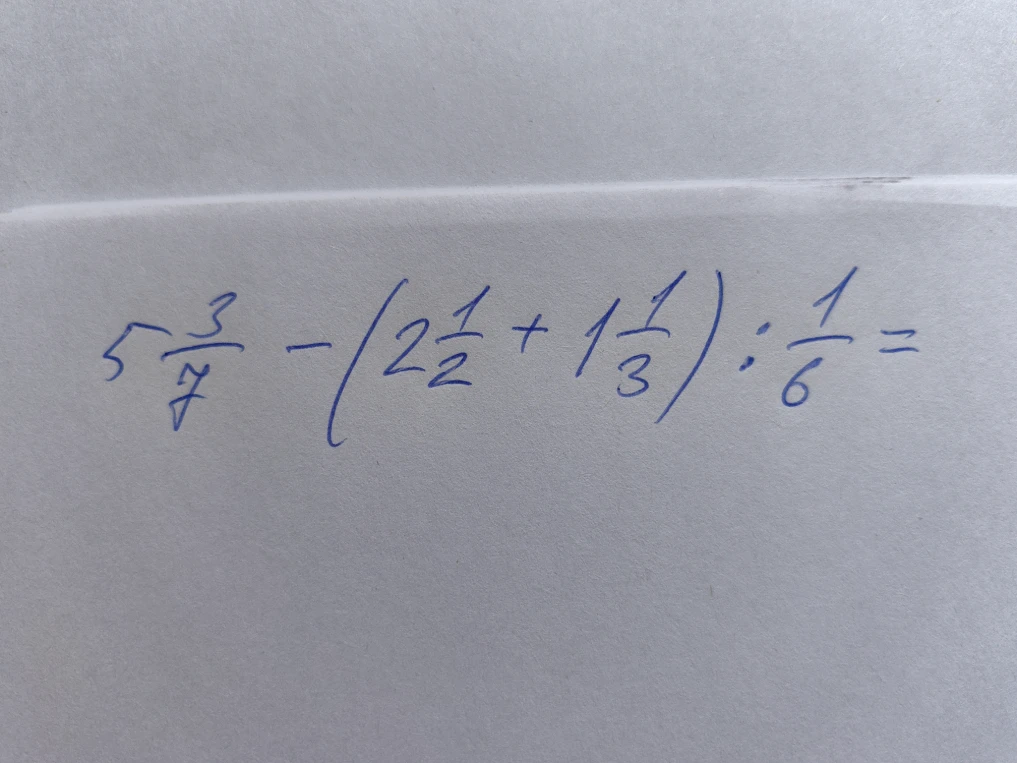 5 3/7 - (2 1/2 + 1 1/3) : 1/6 =